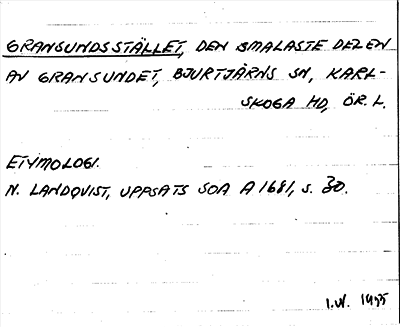 GRANSUNDSSTÄLLET, DEN SMALASTE DELEN
AV GRANSUNDET, BJURTJÄRNS SN, KARL-
SKOGA HD, ÖR. L.
ETYMOLOGI.
N. LANDQVIST, UPPSATS SOA A 1681, S. 30.
I.W. 1975